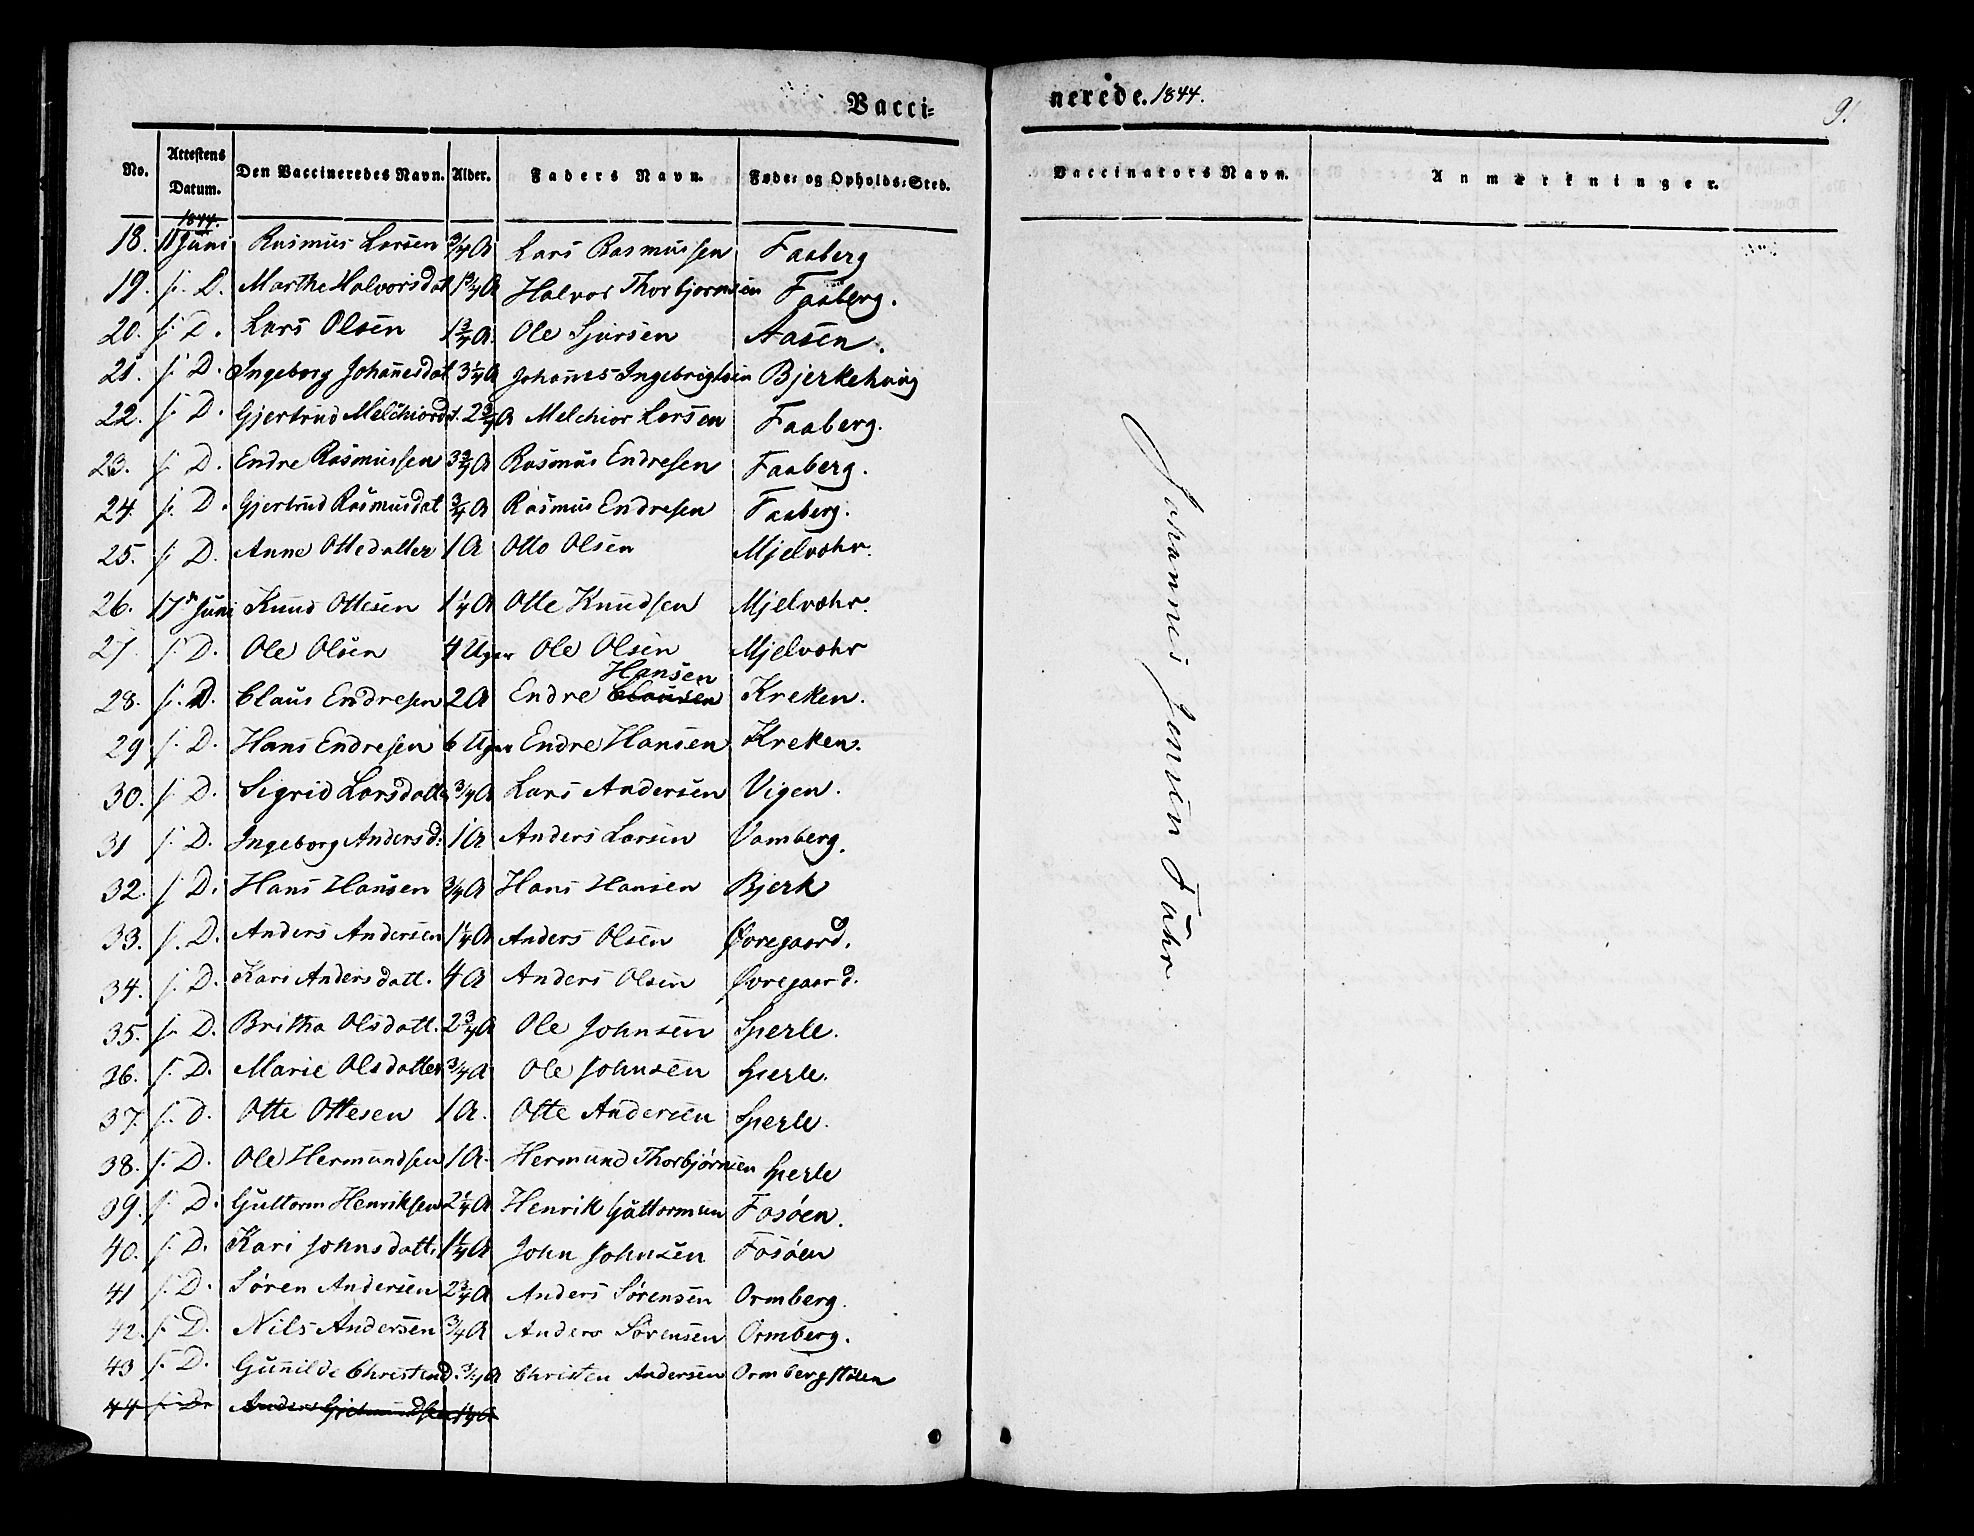 Vacci=
nerede. 1844.
9.
No. Attestens Datum. Den Vaccineredes Navn. Alder. Faders Navn. Føde- og Opholds-Sted. Vaccinators Navn. Anmærkninger.
1844.
18. Juni Rasmus Larsen 3/4 A Lars Rasmussen Faaberg
19. s. D. Marthe Halvorsdat 1 3/4 A Halvor Thorbjørnsen Faaberg.
20. s. D. Lars Olsen 1 3/4 A. Ole Sjursen Aasen.
21. s. D. Ingeborg Johanesdat 3 1/4 A Johanes Ingebrigtsen
22. s. D. Gjertrud Melchiord. 2 3/4 A Melchior Larsen Faaberg.
23. s. D. Endre Rasmussen 3 3/4 A Rasmus Endresen Faaberg.
24. s. D. Gjertrud Rasmusdat 3/4 A Rasmus Endresen Faaberg.
25. s. D. Anne Ottedatter 1 A Otto Olsen Mjelvohr.
26. 17de Juni Knud Ottesen 1 1/4 A Otte Knudsen Mjelvohr.
27. s. D. Ole Olsen 4 Uger Ole Olsen Mjelvohr
Hansen
28. s. D. Claus Endresen 2 A Endre Clausen Kreken.
29 s. D. Hans Endresen 6 Uger Endre Hansen Kreken.
30. s. D. Sigrid Larsdatte 3/4 A Lars Andersen Vigen.
31 s. D. Ingeborg Andersd. 1 A Anders Larsen Vamberg.
32. s. D. Hans Hansen 3/4 A Hans Hansen Bjerk
33. s. D. Anders Andersen 1 1/4 A Anders Olsen Øvregaard.
34. s. D. Kari Andersdatt. 4 A Anders Olsen Øvregaard.
35. s. D. Britha Olsdatt. 2 3/4 A Ole Johnsen Sperle.
36. s. D. Marie Olsdatter 3/4 A Ole Johnsen Sperle.
37. s. D. Otte Ottesen 1 A. Otte Andersen Sperle.
38. s. D. Ole Hermundsen 1 A. Hermund Thorbjørnsen Sperle
39. s. D. Guttorm Henriksen 2 1/4 A Henrik Guttormsen Fosøen.
40. s. D. Kari Johnsdatt. 1 1/4 A John Johnsen Fosøen
41 s. D. Søren Andersen 2 3/4 A Anders Sørensen Ormberg.
42. s. D. Nils Andersen 3/4 A Anders Sørensen Ormberg.
43 s. D. Gunilde Christend. 3/4 A Christen Andersen Ormbergstølen
44 s. D. Anders
Johannes Jensen Fahr